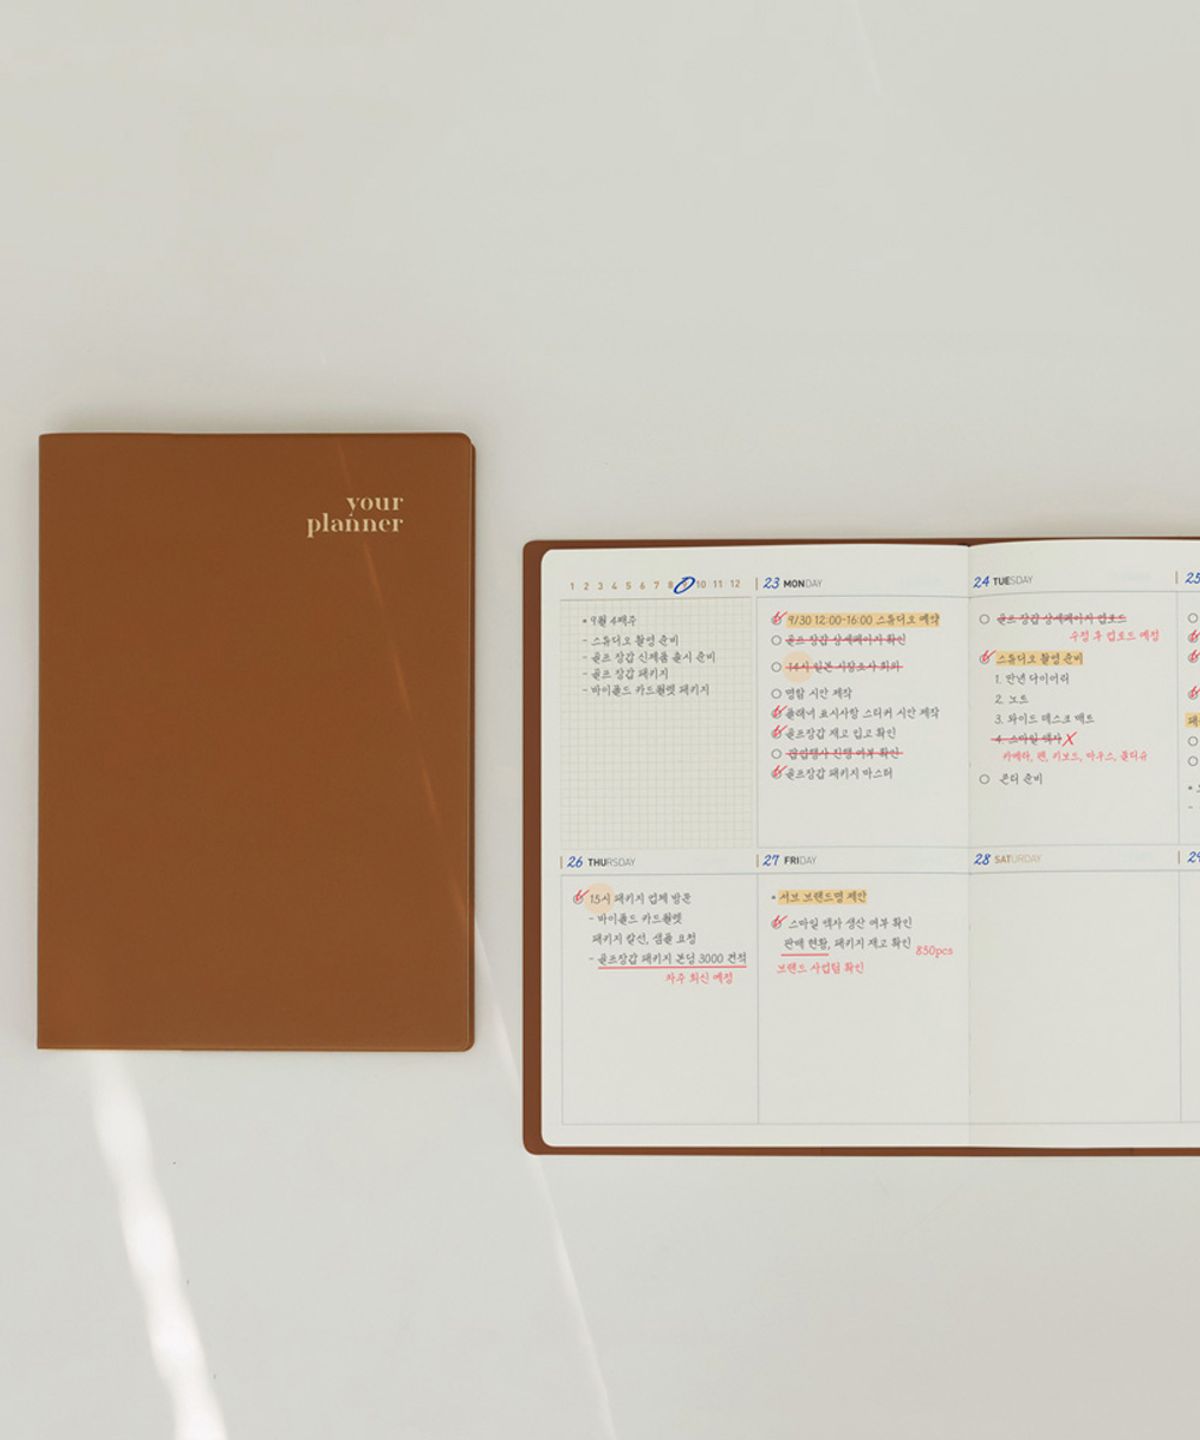 your
planner
1 2 3 4 5 6 7 8 9 10 11 12
• 9월 4째주
- 스튜디오 촬영 준비
- 골프 장갑 신제품 출시 준비
- 골프 장갑 패키지
- 바이폴드 카드월렛 패키지
23 MONDAY
9/30 12:00-16:00 스튜디오 예약
골프 장갑 상세페이지 확인
14시 일본 시장조사 회의
명함 시안 제작
플래너 표시사항 스티커 시안 제작
골프장갑 재고 입고 확인
팝업행사 진행 여부 확인
골프장갑 패키지 마스터
24 TUESDAY
골프 장갑 상세페이지 업로드
수정 후 업로드 예정
스튜디오 촬영 준비
1. 만년 다이어리
2. 노트
3. 와이드 데스크 매트
4. 스마일 액자 X
카메라, 펜, 키보드, 마우스, 물티슈
콘티 준비
25
26 THURSDAY
15시 패키지 업체 방문
- 바이폴드 카드월렛
패키지 칼선, 샘플 요청
- 골프장갑 패키지 본딩 3000 견적
차주 회신 예정
27 FRIDAY
• 서브 브랜드명 제안
스마일 액자 생산 여부 확인
판매 현황, 패키지 재고 확인 850pcs
브랜드 사업팀 확인
28 SATURDAY